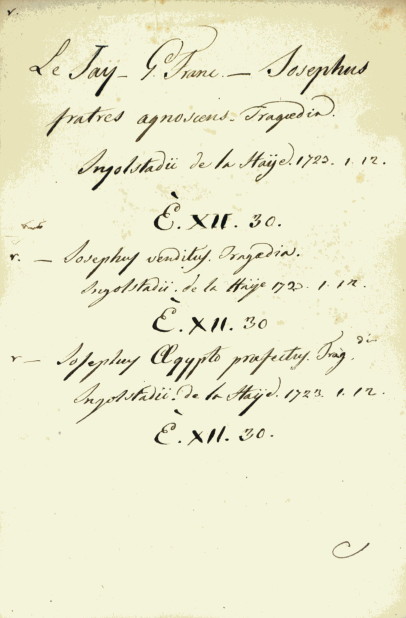 v.
Le Jay - G. Franc. - Josephus
fratres agnoscens. Tragœdia.
Ingolstadii de la Haÿe. 1723. 1. 12.
È. XII. 30.
v. - Josephus venditus. Tragœdia.
Ingolstadii. de la Haÿe 1723. 1. 12.
È. XII. 30
v - Josephus Ægypto præfectus. Tragdia.
Ingolstadii. de la Haÿe. 1723. 1. 12.
È. XII. 30.